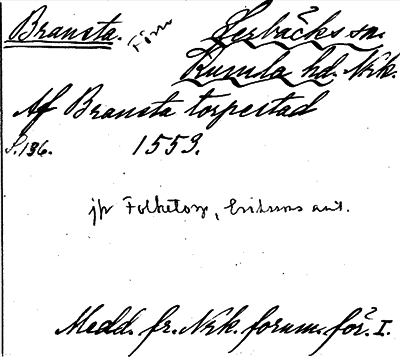 Bransta. Försv. Lerbäcks sn.
Kumla hd. Nrk.
Af Bransta torpestad
S. 136. 1553.
jfr Folketorp, Erikssons ant.
Medd. fr. Nrk. fornm. för. I.